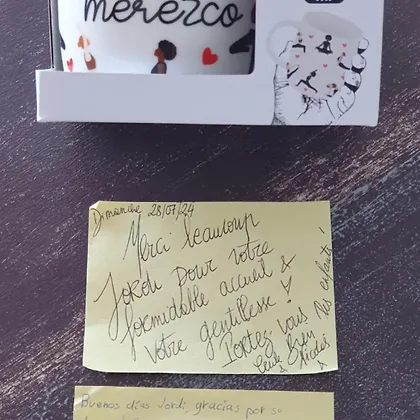 merezco
Dimanche 28/07/24
Merci beaucoup
Jordi pour votre
formidable accueil &
votre gentillesse !
Portez-vous
Buenos días Jordi, gracias por su